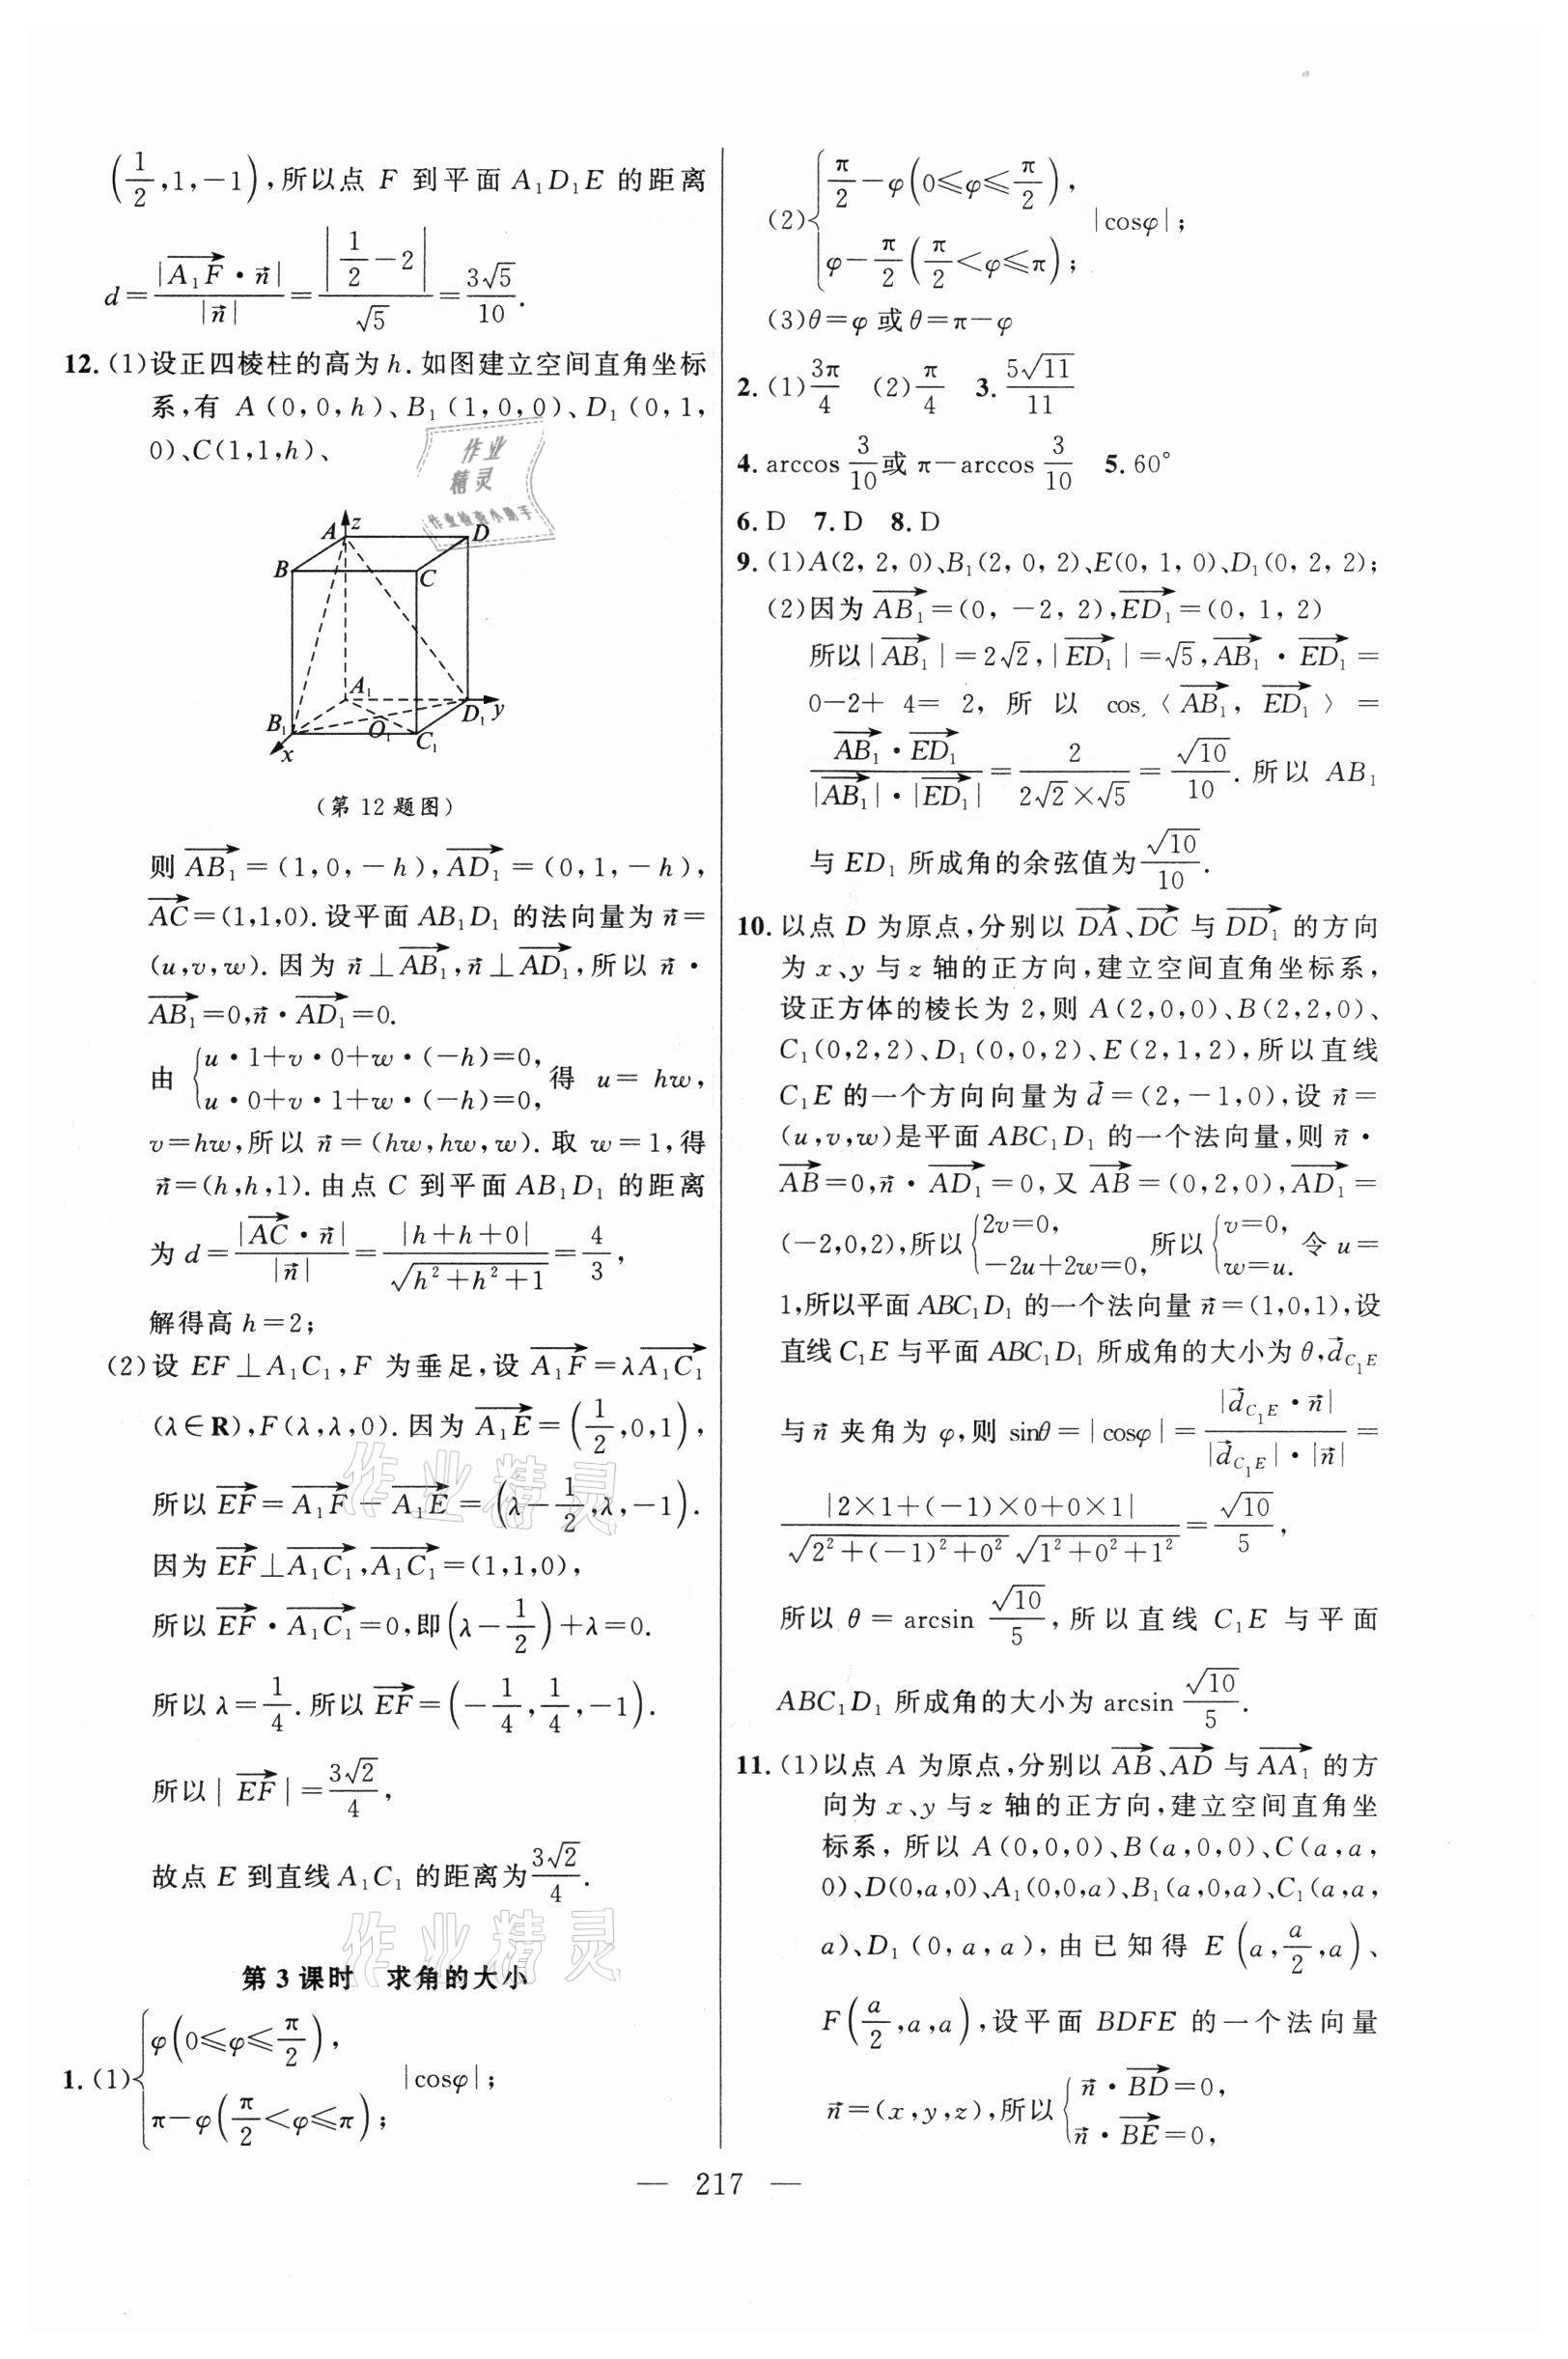 (1/2,1,-1),所以点 F 到平面 A₁D₁E 的距离
d=|A₁F→·n⃗|/|n⃗|=|1/2-2|/√5=3√5/10.
12.(1)设正四棱柱的高为h.如图建立空间直角坐标
系,有 A(0,0,h)、B₁(1,0,0)、D₁(0,1,
0)、C(1,1,h)、
作业
精灵
作业检查小助手
A z D
B C
A₁
B₁ O₁ D₁ y
x C₁
(第12题图)
则AB₁→=(1,0,-h),AD₁→=(0,1,-h),
AC→=(1,1,0).设平面 AB₁D₁ 的法向量为n⃗=
(u,v,w).因为n⃗⊥AB₁→,n⃗⊥AD₁→,所以n⃗·
AB₁→=0,n⃗·AD₁→=0.
由{u·1+v·0+w·(-h)=0, u·0+v·1+w·(-h)=0,得 u=hw,
v=hw,所以n⃗=(hw,hw,w).取w=1,得
n⃗=(h,h,1).由点 C 到平面 AB₁D₁ 的距离
为d=|AC→·n⃗|/|n⃗|=|h+h+0|/√(h²+h²+1)=4/3,
解得高h=2;
(2)设 EF⊥A₁C₁,F 为垂足,设A₁F→=λA₁C₁→
(λ∈R),F(λ,λ,0).因为A₁E→=(1/2,0,1),
所以EF→=A₁F→-A₁E→=(λ-1/2,λ,-1).
因为EF→⊥A₁C₁→,A₁C₁→=(1,1,0),
所以EF→·A₁C₁→=0,即(λ-1/2)+λ=0.
所以λ=1/4.所以EF→=(-1/4,1/4,-1).
所以|EF→|=3√2/4,
故点 E 到直线A₁C₁ 的距离为3√2/4.
作业精灵
作业精灵
第3课时 求角的大小
1.(1){φ(0≤φ≤π/2), π-φ(π/2<φ≤π); |cosφ|;
(2){π/2-φ(0≤φ≤π/2), φ-π/2(π/2<φ≤π); |cosφ|;
(3)θ=φ或θ=π-φ
2.(1)3π/4 (2)π/4 3.5√11/11
4.arccos 3/10或π-arccos 3/10 5.60°
6.D 7.D 8.D
9.(1)A(2,2,0)、B₁(2,0,2)、E(0,1,0)、D₁(0,2,2);
(2)因为AB₁→=(0,-2,2),ED₁→=(0,1,2)
所以|AB₁→|=2√2,|ED₁→|=√5,AB₁→·ED₁→=
0-2+4=2,所以 cos〈AB₁→,ED₁→〉=
AB₁→·ED₁→/|AB₁→|·|ED₁→|=2/(2√2×√5)=√10/10.所以 AB₁
与ED₁ 所成角的余弦值为√10/10.
10.以点 D 为原点,分别以DA→、DC→与DD₁→的方向
为x、y与z轴的正方向,建立空间直角坐标系,
设正方体的棱长为2,则A(2,0,0)、B(2,2,0)、
C₁(0,2,2)、D₁(0,0,2)、E(2,1,2),所以直线
C₁E的一个方向向量为d⃗=(2,-1,0),设n⃗=
(u,v,w)是平面ABC₁D₁ 的一个法向量,则n⃗·
AB→=0,n⃗·AD₁→=0,又AB→=(0,2,0),AD₁→=
(-2,0,2),所以{2v=0, -2u+2w=0,所以{v=0, w=u.令u=
1,所以平面ABC₁D₁ 的一个法向量n⃗=(1,0,1),设
直线C₁E与平面ABC₁D₁ 所成角的大小为θ,d⃗C₁E
与n⃗夹角为φ,则sinθ=|cosφ|=|d⃗C₁E·n⃗|/|d⃗C₁E|·|n⃗|=
|2×1+(-1)×0+0×1|/√(2²+(-1)²+0²)√(1²+0²+1²)=√10/5,
所以θ=arcsin √10/5,所以直线 C₁E 与平面
ABC₁D₁ 所成角的大小为arcsin √10/5.
11.(1)以点 A 为原点,分别以AB→、AD→与AA₁→的方
向为x、y与z轴的正方向,建立空间直角坐
标系,所以A(0,0,0)、B(a,0,0)、C(a,a,
0)、D(0,a,0)、A₁(0,0,a)、B₁(a,0,a)、C₁(a,a,
a)、D₁(0,a,a),由已知得 E(a,a/2,a)、
F(a/2,a,a),设平面 BDFE 的一个法向量
n⃗=(x,y,z),所以{n⃗·BD→=0, n⃗·BE→=0,
— 217 —